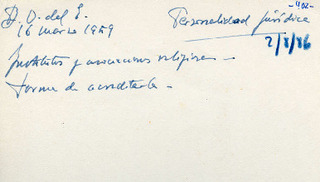 -402-
D. O. del E.
16 marzo 1959
Personalidad jurídica
2/8/86
Institutos y asociaciones religiosas -
Forma de acreditarla -